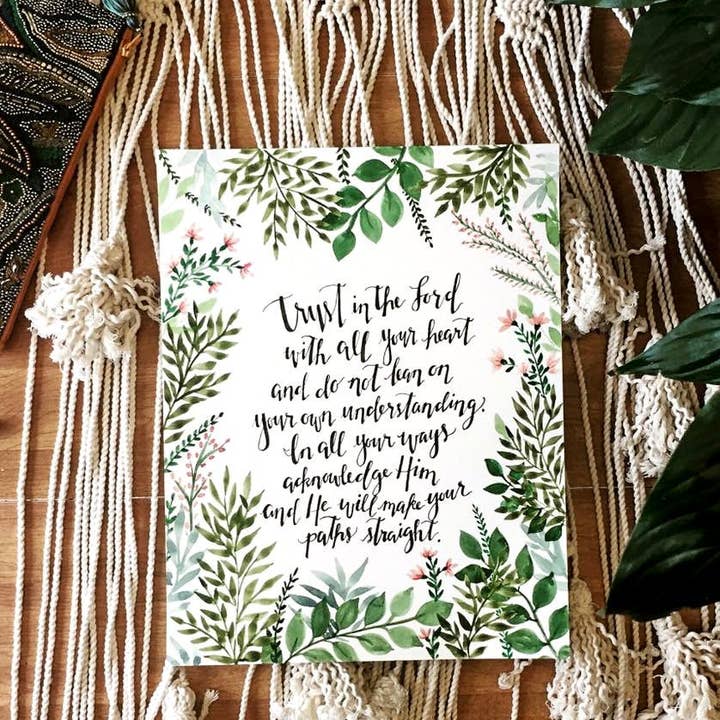 trust in the Lord
with all your heart
and do not lean on
your own understanding.
In all your ways
acknowledge Him
and He will make your
paths straight.